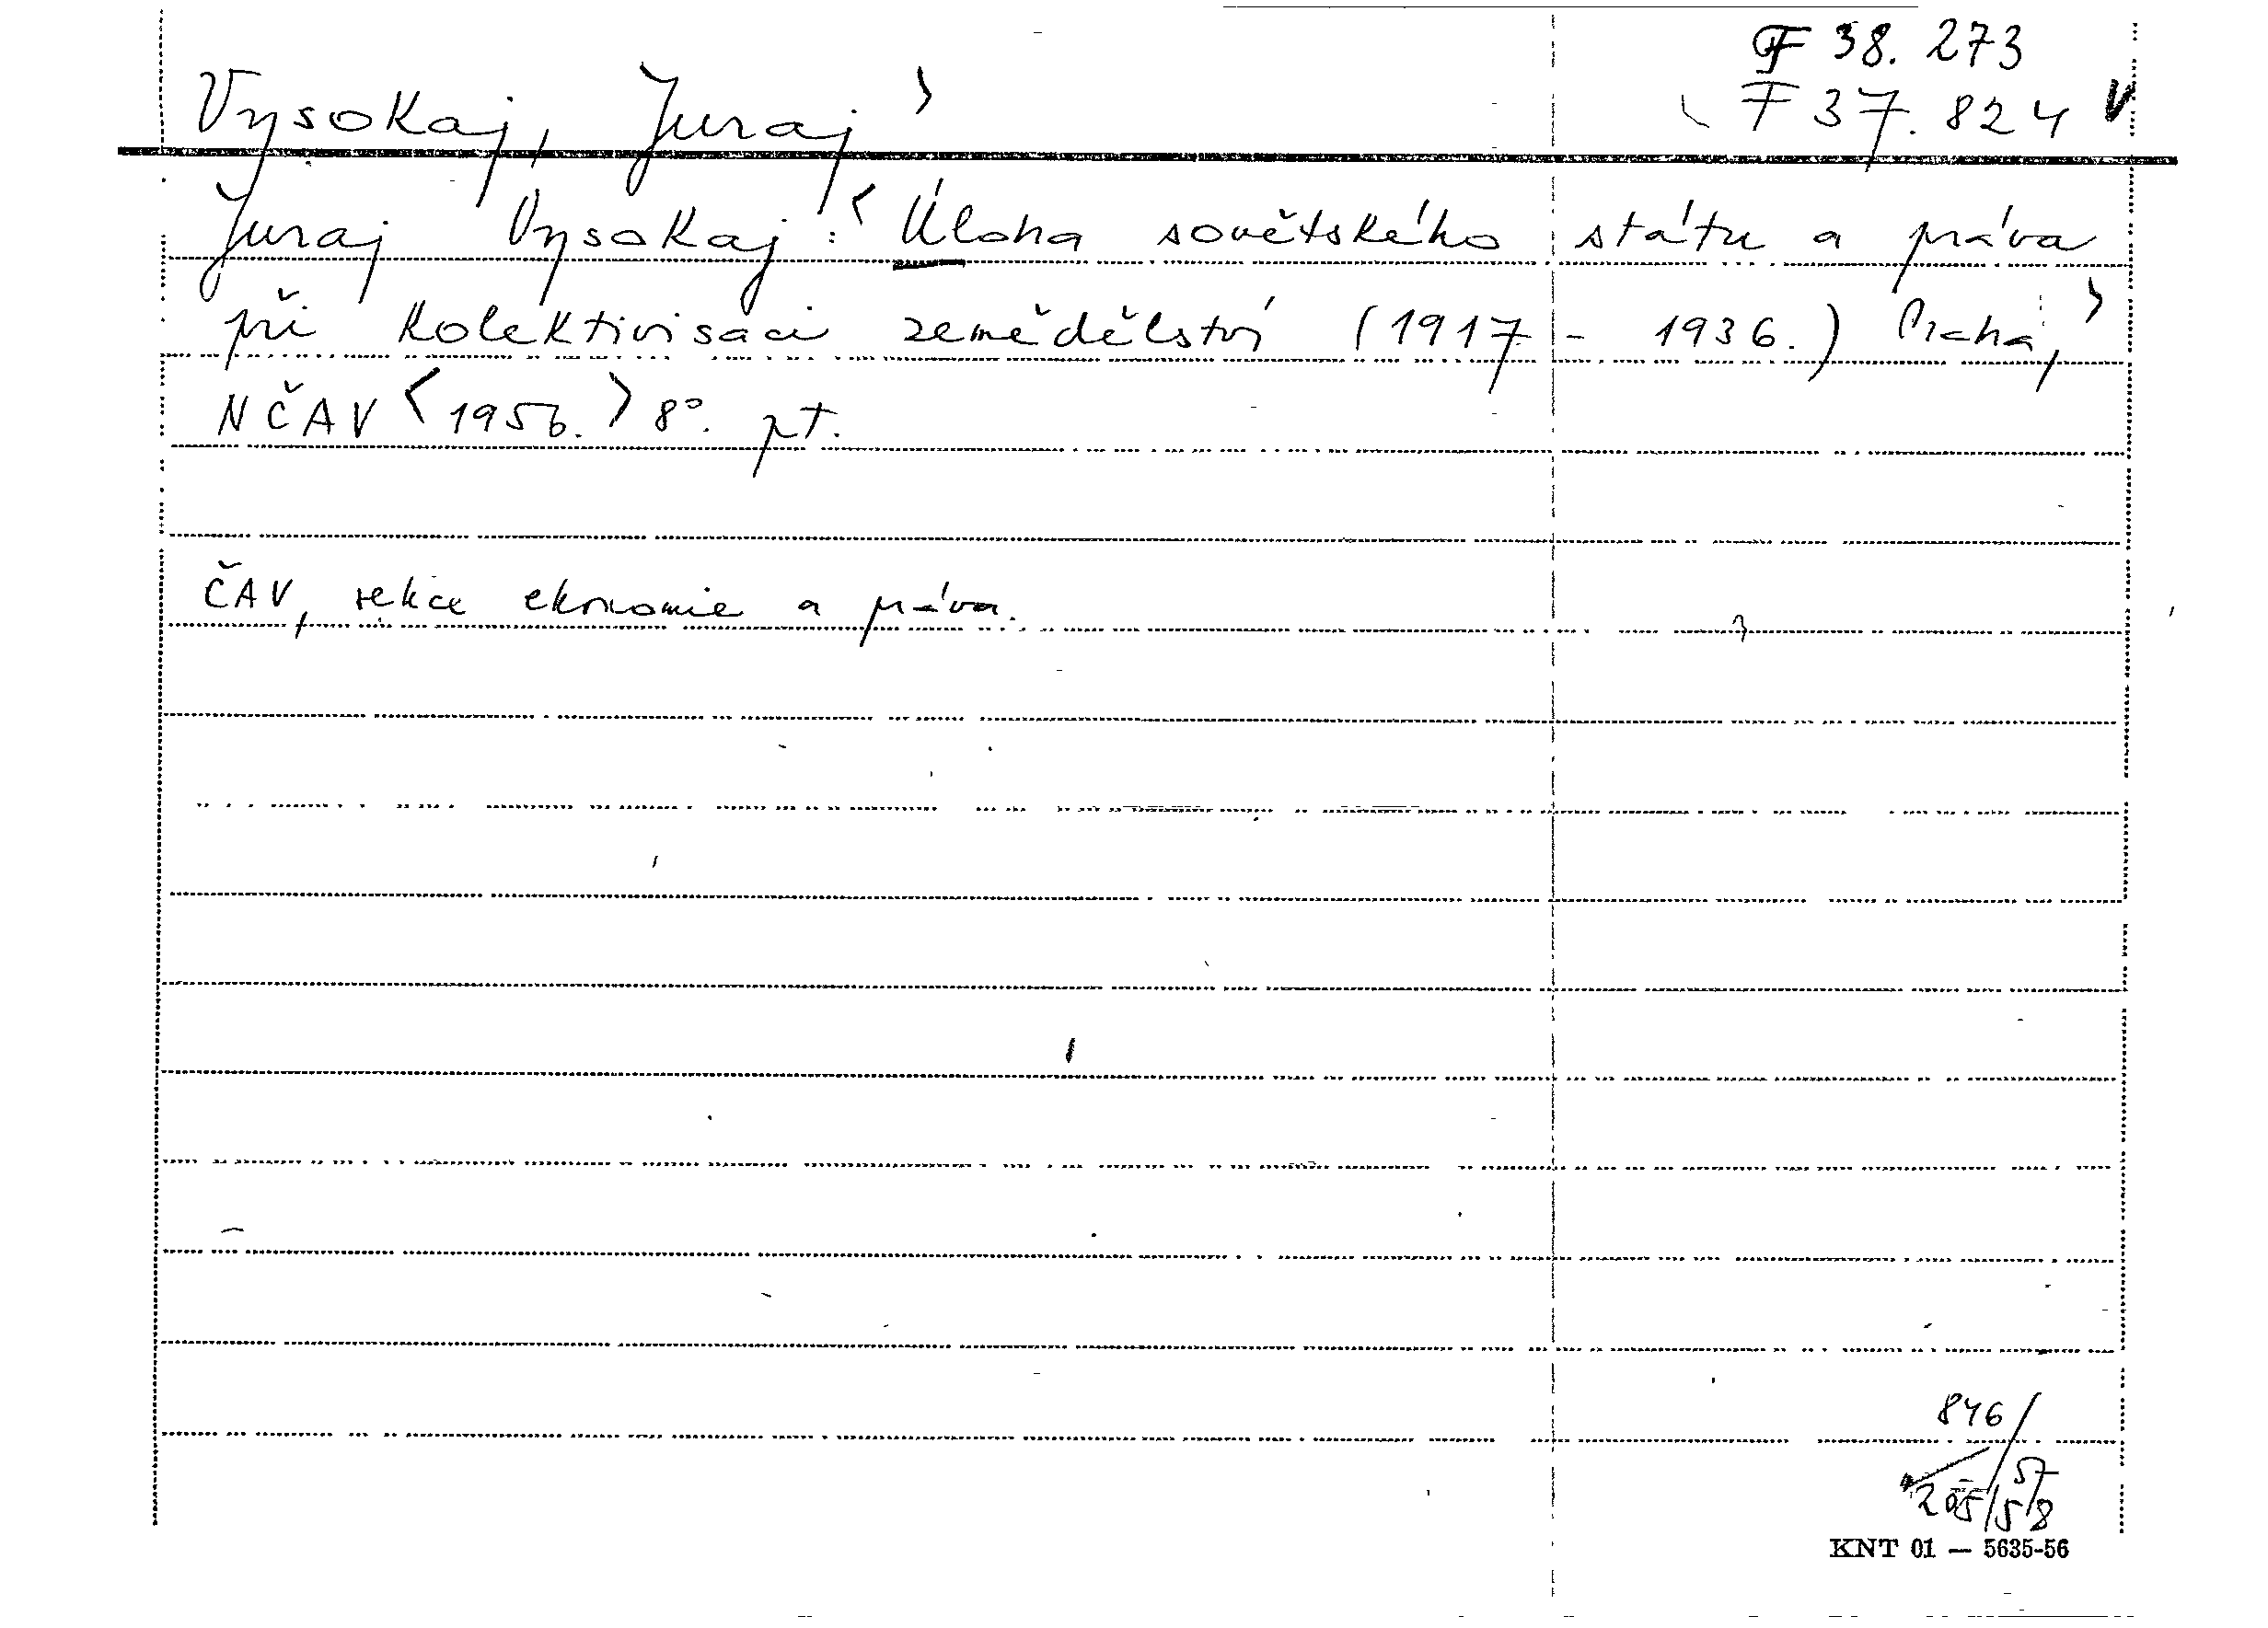 F 38.273
Vysokaj, Juraj >
F 37.824 V
Juraj Vysokaj: < Úloha sovětského státu a práva
při kolektivisaci zemědělství (1917 - 1936.) Praha, >
NČAV < 1956. > 8°. pt.
ČAV, sekce ekonomie a práva.
846/57
205/58
KNT 01 — 5635-56